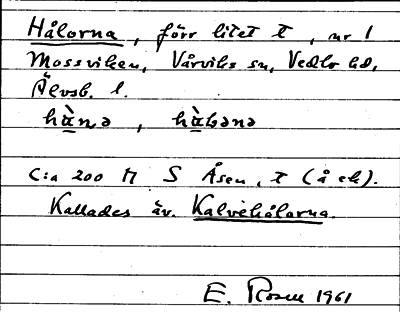 Hålorna, förr litet t, nr 1
Mossviken, Vårviks sn, Vedbo hd,
Älvsb. l.
hàn̥ə, hàɭənə
C:a 200 m S Åsen, t (å ek).
Kallades äv. Kalvehålorna.
E. Rosen 1961